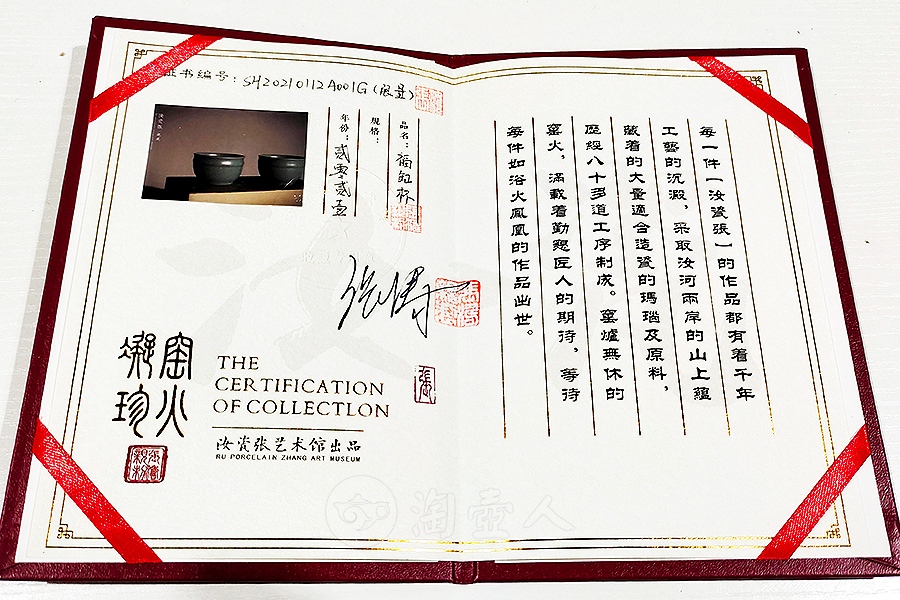 证书编号：SH20210112A001G(限量)
品名：福缸杯
规格：
年份：贰零贰壹
窑火
凝珍
THE
CERTIFICATION
OF COLLECTLON
汝瓷张艺术馆出品
RU PORCELAIN ZHANG ART MUSEUM
每一件一汝瓷張一的作品都有着千年
工藝的沉澱，采取汝河兩岸的山上蘊
藏着的大量適合造瓷的瑪瑙及原料，
歷經八十多道工序制成。窯爐無休的
窯火，滿載着勤懇匠人的期待，等待
每件如浴火鳳凰的作品出世。
淘壶人